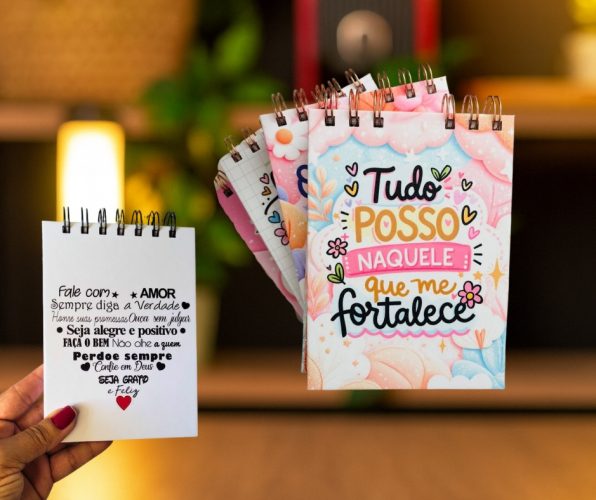 Fale com AMOR
Sempre diga a Verdade
Honre suas promessas Ouça sem julgar
Seja alegre e positivo
FAÇA O BEM Não olhe a quem
Perdoe sempre
Confie em Deus
SEJA GRATO
e Feliz
Tudo
POSSO
NAQUELE
que me
fortalece